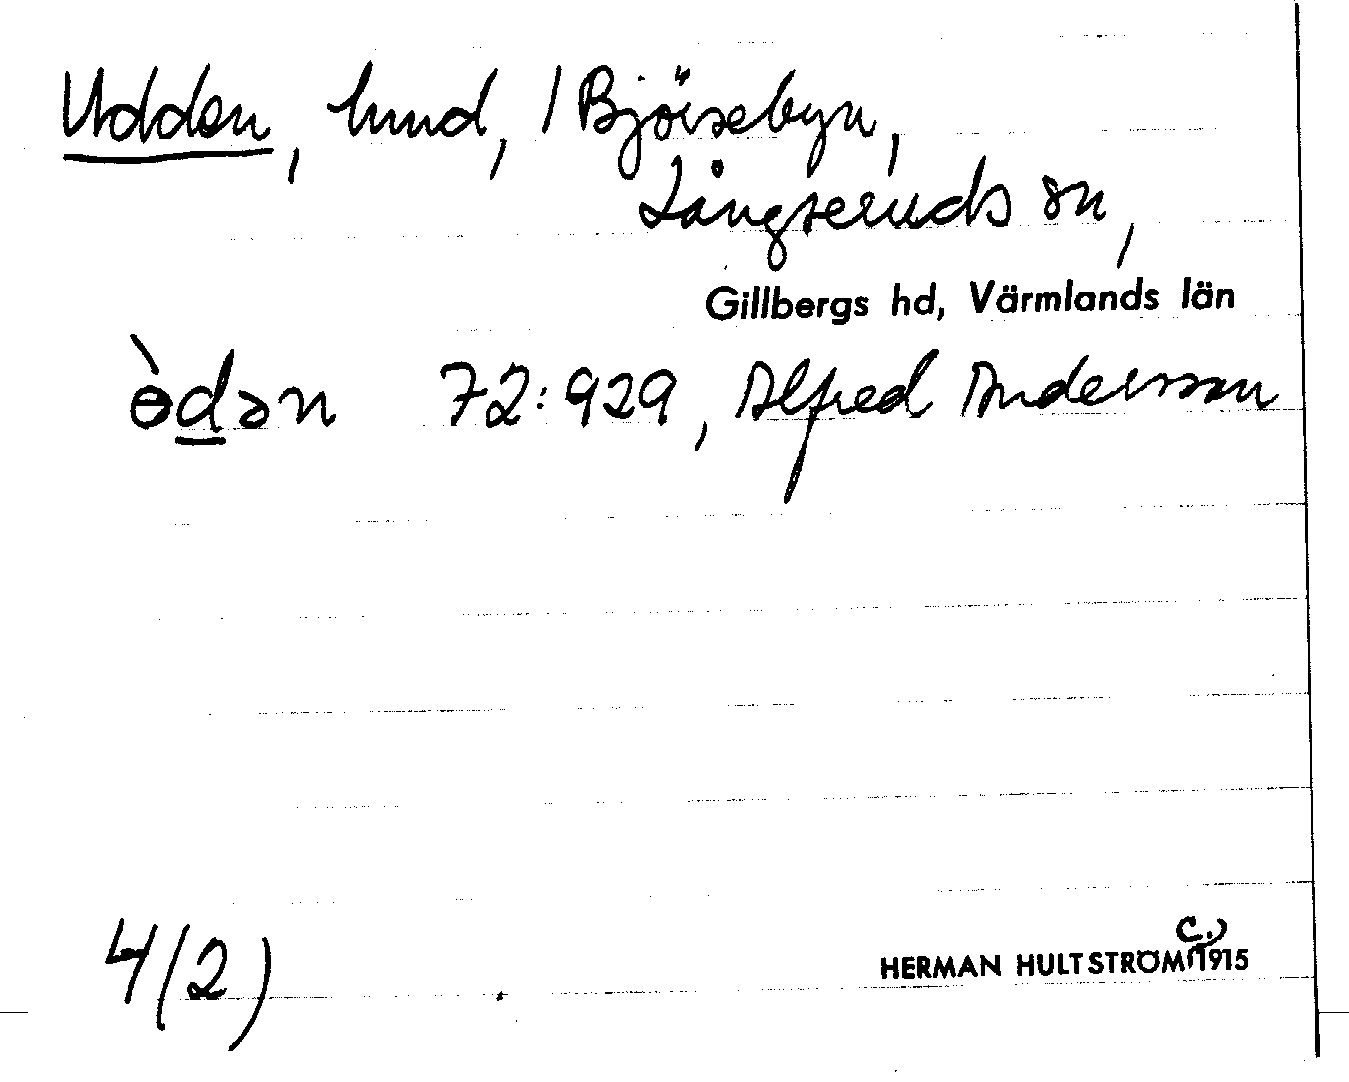 Udden, hmd, 1 Björsebyn,
Långseruds sn,
Gillbergs hd, Värmlands län
ɵ̀dən 72:929, Alfred Andersson
4(2)
C.)
HERMAN HULTSTRÖM 1915